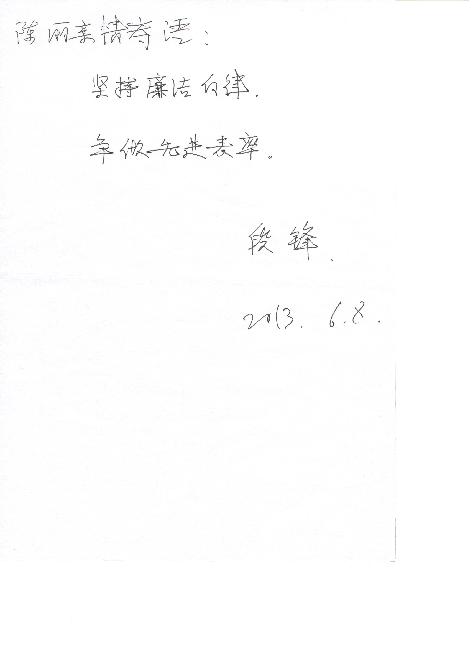 陈丽亲情寄语：
坚持廉洁自律.
争做先进表率。
段锋.
2013. 6.8.